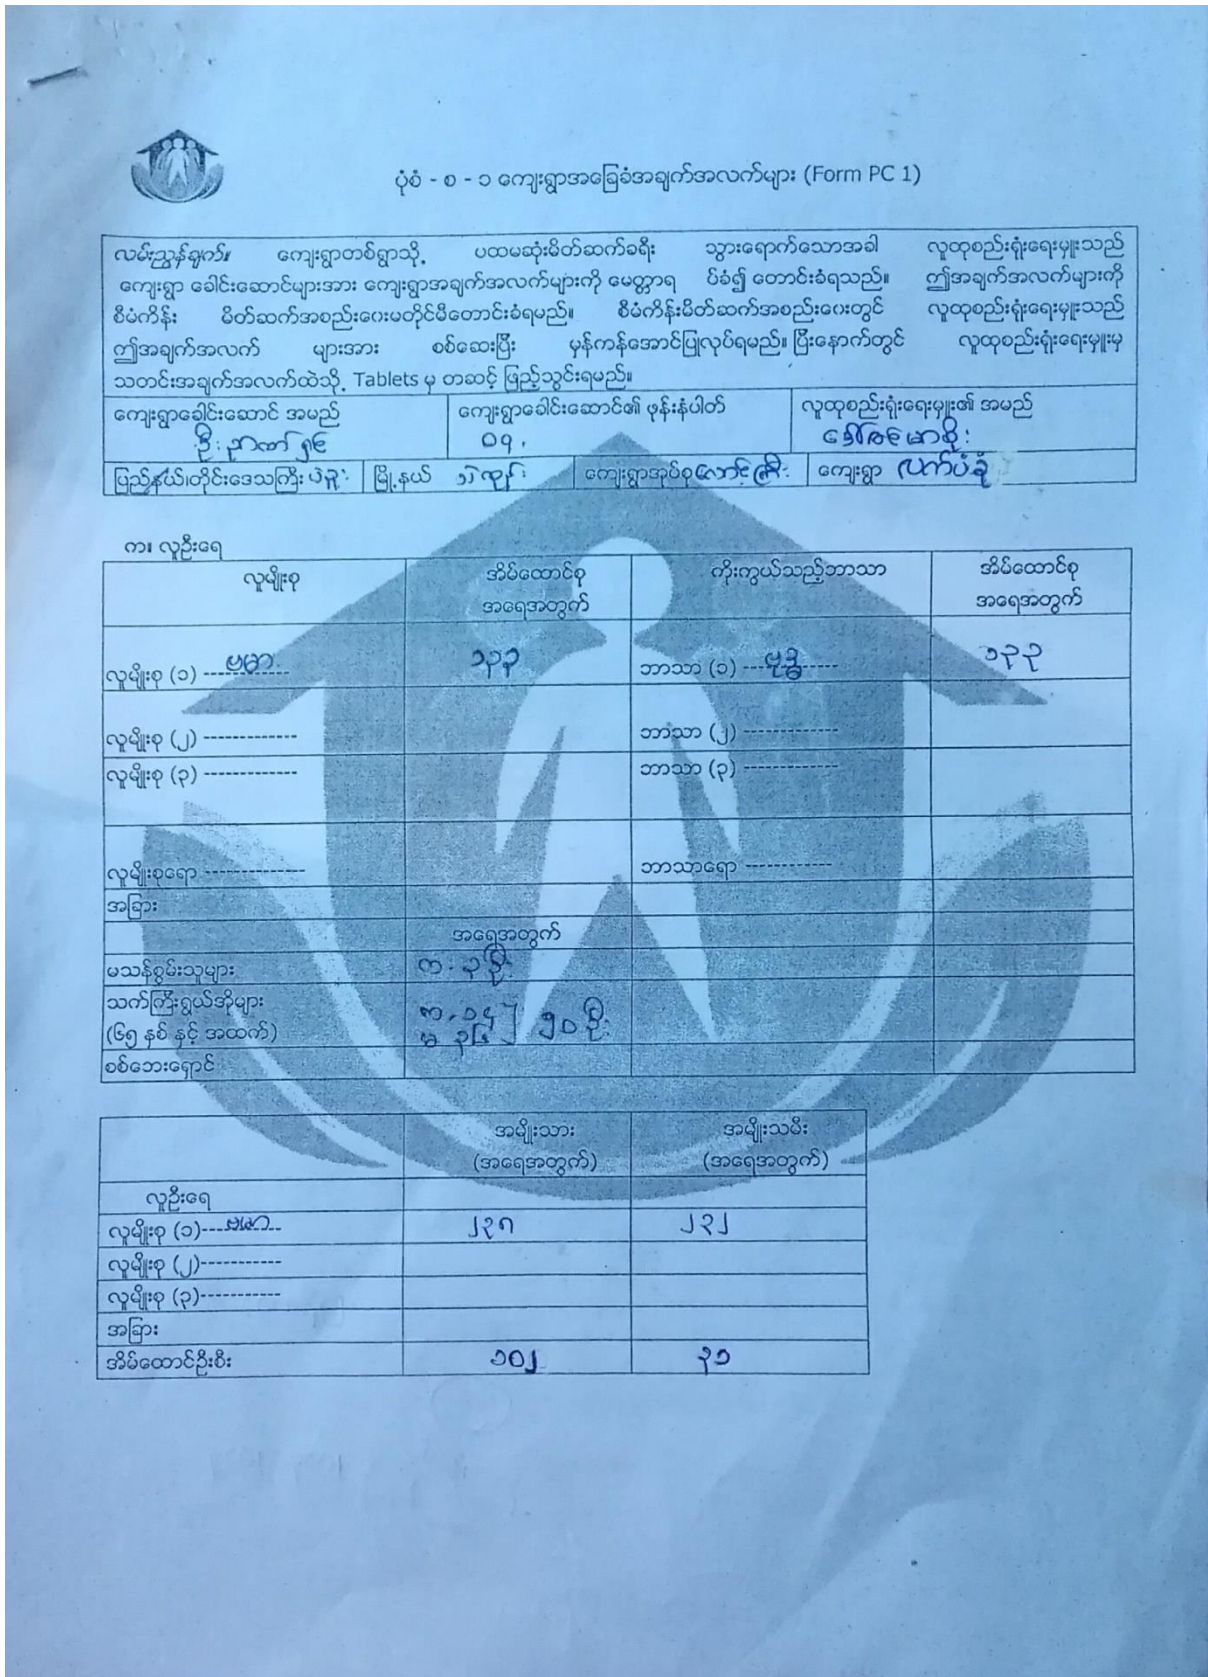 ပုံစံ - စ - ၁ ကျေးရွာအခြေခံအချက်အလက်များ (Form PC 1)
လမ်းညွှန်ချက်။ ကျေးရွာတစ်ရွာသို့ ပထမဆုံးမိတ်ဆက်ခရီး သွားရောက်သောအခါ လူထုစည်းရုံးရေးမှူးသည်
ကျေးရွာ ခေါင်းဆောင်များအား ကျေးရွာအချက်အလက်များကို မေတ္တာရ ပ်ခံ၍ တောင်းခံရသည်။ ဤအချက်အလက်များကို
စီမံကိန်း မိတ်ဆက်အစည်းဝေးမတိုင်မီတောင်းခံရမည်။ စီမံကိန်းမိတ်ဆက်အစည်းဝေးတွင် လူထုစည်းရုံးရေးမှူးသည်
ဤအချက်အလက် များအား စစ်ဆေးပြီး မှန်ကန်အောင်ပြုလုပ်ရမည်။ ပြီးနောက်တွင် လူထုစည်းရုံးရေးမှူးမှ
သတင်းအချက်အလက်ထဲသို့ Tablets မှ တဆင့် ဖြည့်သွင်းရမည်။
ကျေးရွာခေါင်းဆောင် အမည် ကျေးရွာခေါင်းဆောင်၏ ဖုန်းနံပါတ် လူထုစည်းရုံးရေးမှူး၏ အမည်
ဦးဉာဏ်ရှင် ၀၇.
ပြည်နယ်၊တိုင်းဒေသကြီး ပဲခူး မြို့နယ် သဲကုန်း ကျေးရွာအုပ်စု ကျေးရွာ လက်ပံခုံ
က။ လူဦးရေ
လူမျိုးစု အိမ်ထောင်စု ကိုးကွယ်သည့်ဘာသာ အိမ်ထောင်စု
အရေအတွက် အရေအတွက်
လူမျိုးစု (၁) --- ဗမာ ၁၃၃ ဘာသာ (၁) --- ဗုဒ္ဓ ၁၃၃
လူမျိုးစု (၂) ------------- ဘာသာ (၂) -------------
လူမျိုးစု (၃) ------------- ဘာသာ (၃) -------------
လူမျိုးစုရော -------------- ဘာသာရော ------------
အခြား
အရေအတွက်
မသန်စွမ်းသူများ က . ၃ ဦး
သက်ကြီးရွယ်အိုများ က . ၁၄
(၆၅ နှစ် နှင့် အထက်) မ ၃၆ ၅၀ ဦး
စစ်ဘေးရှောင်
အမျိုးသား အမျိုးသမီး
(အရေအတွက်) (အရေအတွက်)
လူဦးရေ
လူမျိုးစု (၁)--- ဗမာ -- ၂၃၈ ၂၃၂
လူမျိုးစု (၂)-----------
လူမျိုးစု (၃)-----------
အခြား
အိမ်ထောင်ဦးစီး ၁၀၂ ၃၁